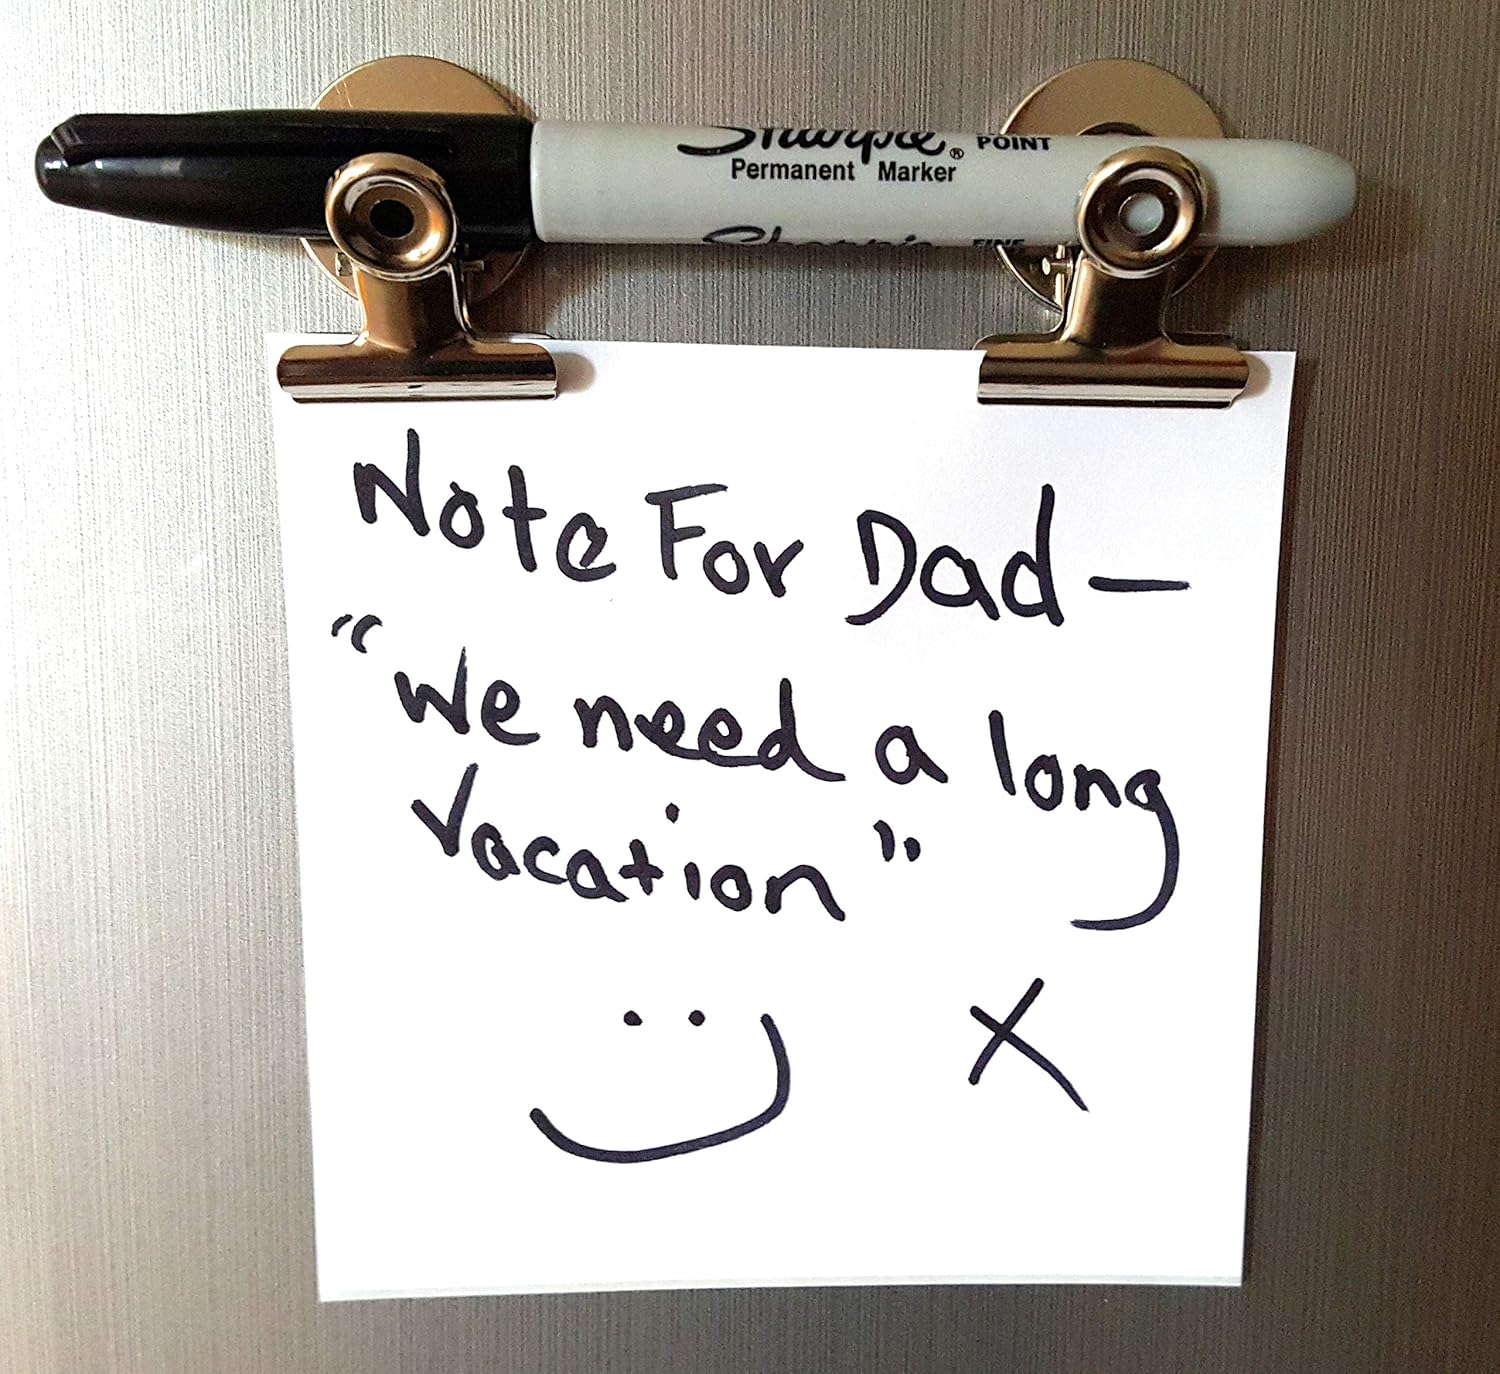 Sharpie® POINT
Permanent Marker
Sharpie FINE
Note For Dad —
"We need a long
Vacation"
X